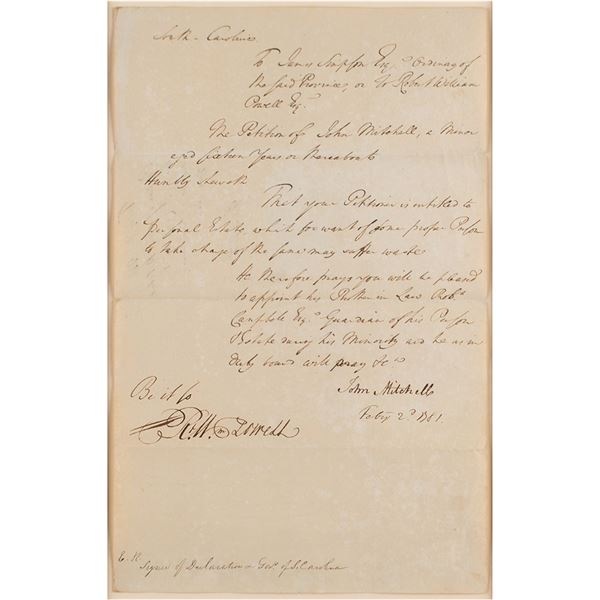 South = Carolina
To James Simpson Esqr. Ordinary of
the said Province, or to Robert William
Powell Esqr.
The Petition of John Mitchell, a Minor
aged Sixteen Years or thereabouts
Humbly Sheweth
That your Petitioner is entitled to
personal Estate, which for want of some proper Person
to take charge of the same may suffer waste
He therefore prays you will be pleased
to appoint his Father in Law Robt.
Campbell Esqr. Guardian of his Person
& Estate during his Minority and he as in
duty bound will pray &c.
John Mitchell
Feby 2d. 1781.
Be it so
Rt. Wm. Powell
Signer of Declaration & Gov. of S. Carolina